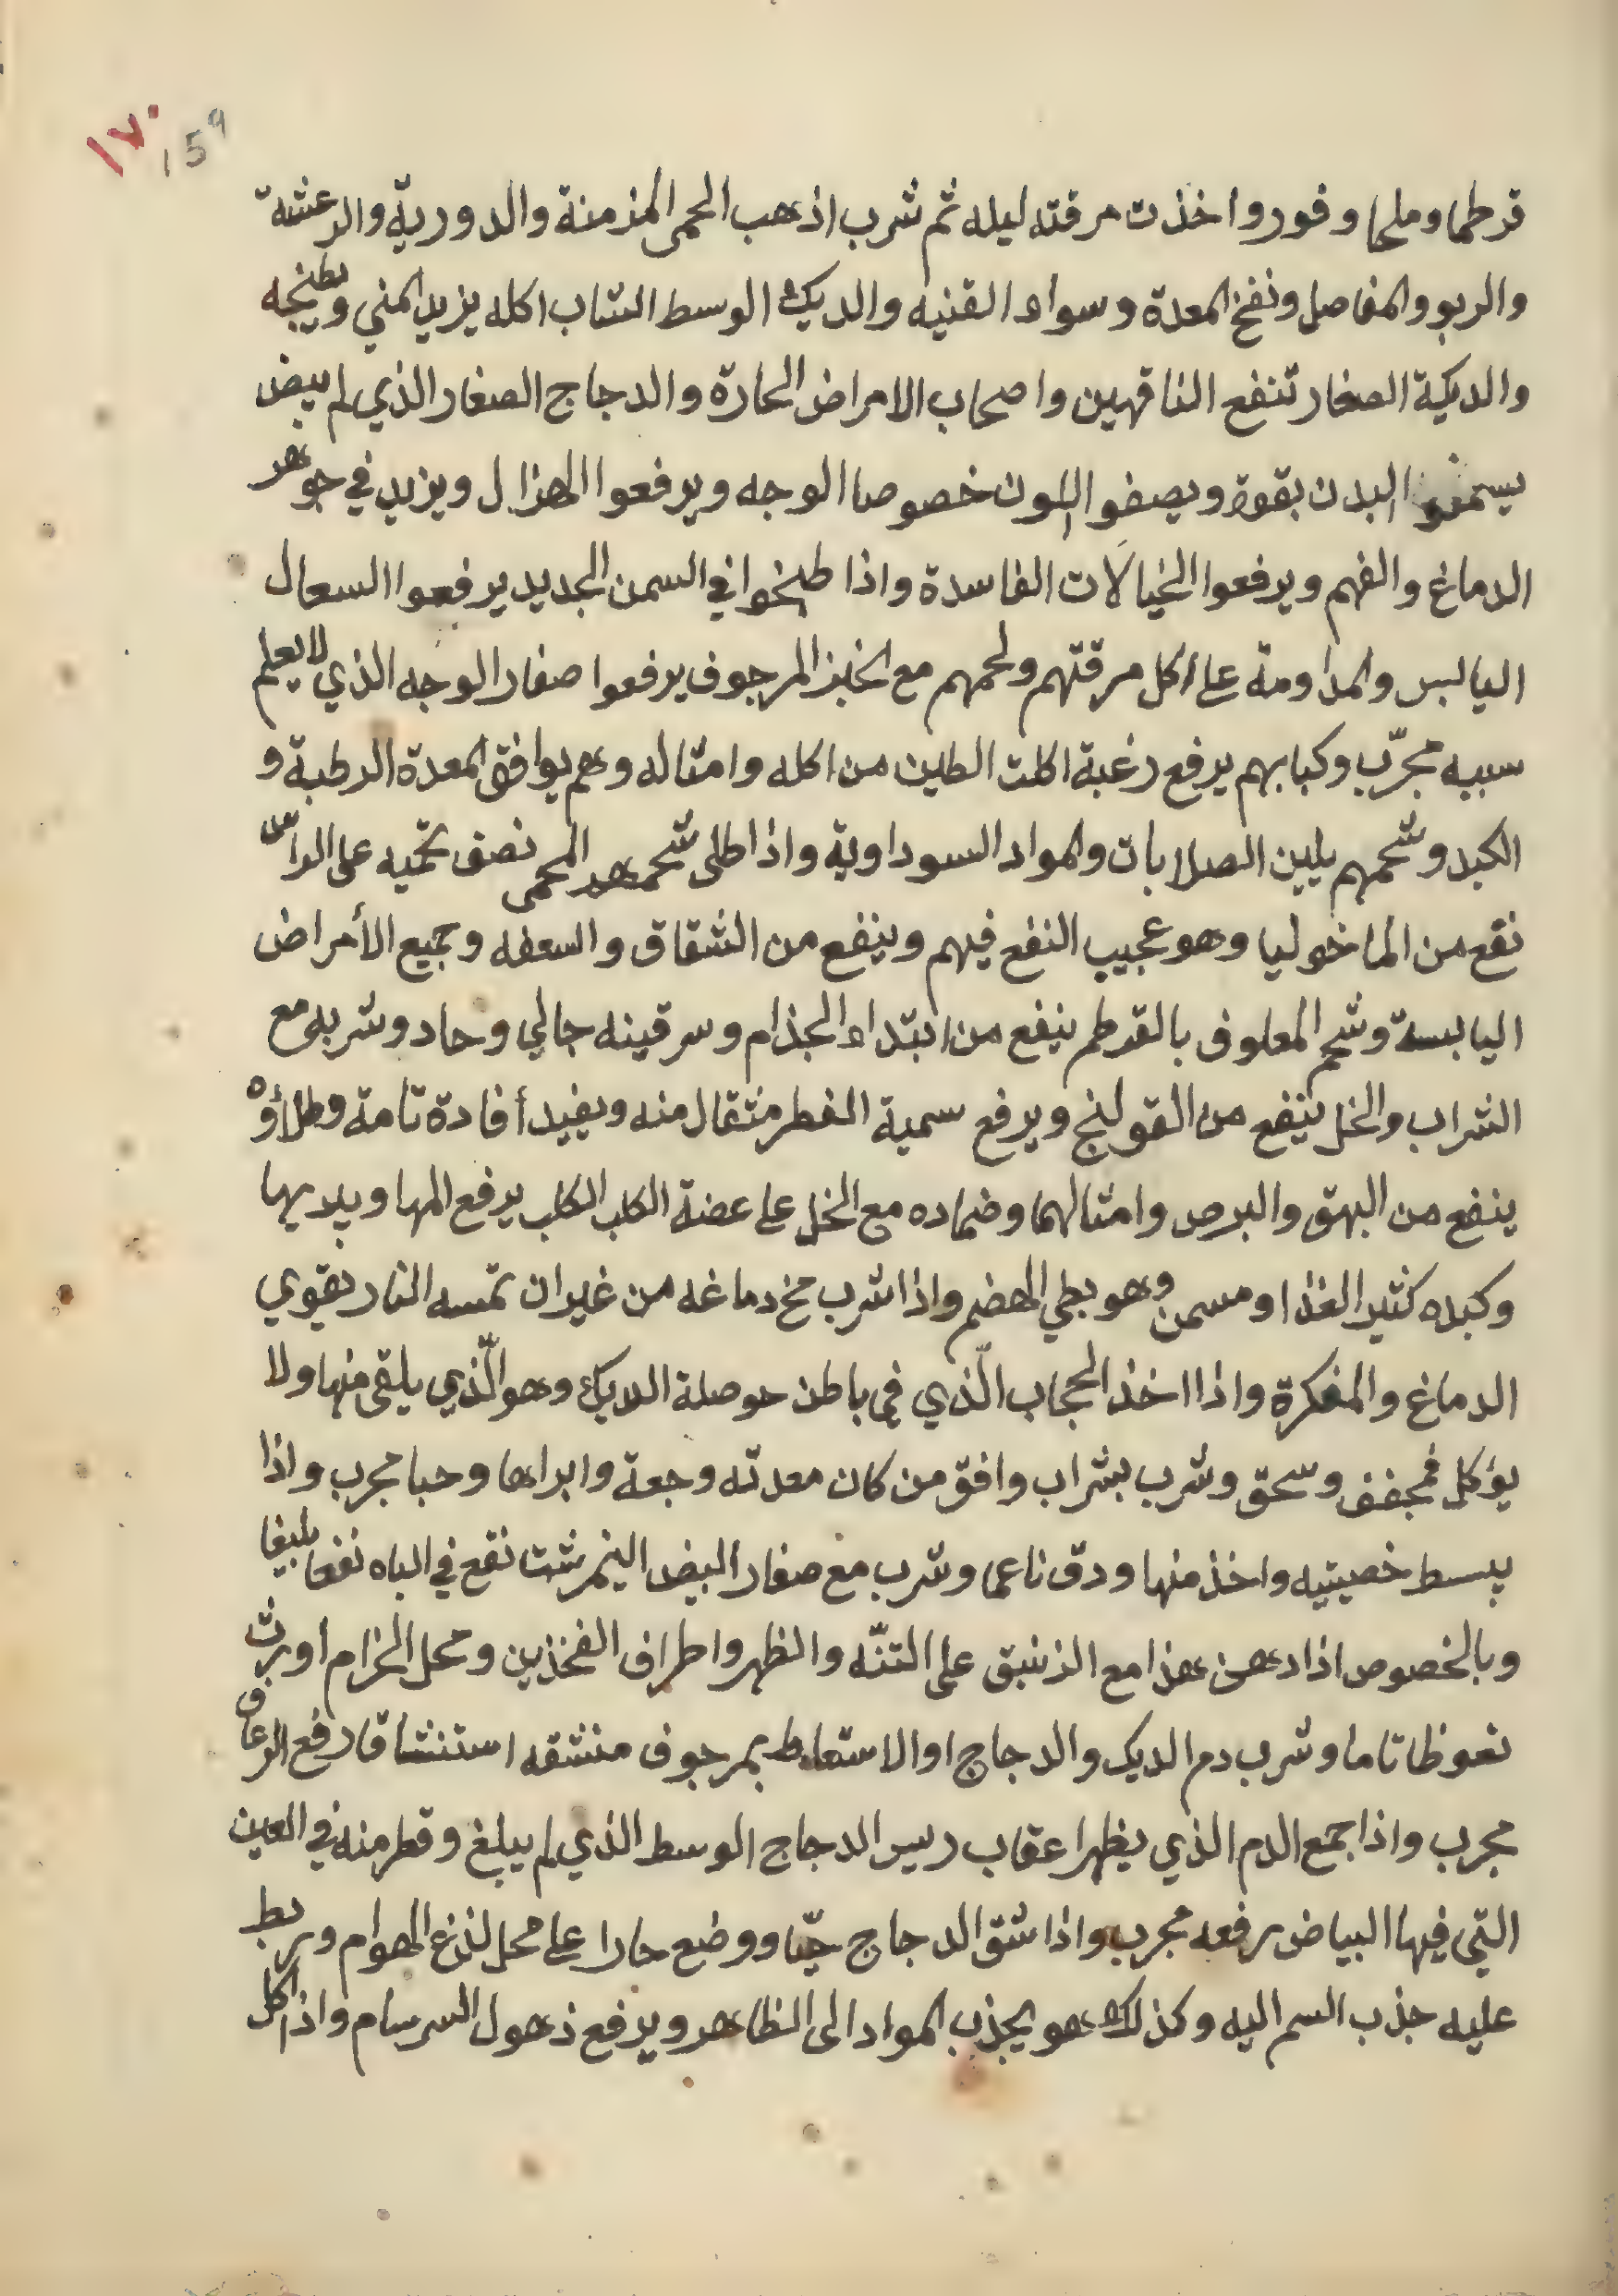 ١٧٠ 159
قرطما وملحا وفور واخذت مرقته ليله ثم شرب اذهب الحمى المزمنة والدوريّة والرعشة
والربو والمفاصل ونفخ المعدة وسواد القنيه والديك الوسط الشاب اكله يزيد المني ويطنجه
والديكة الصغار تنفع الناقهين واصحاب الامراض الحارة والدجاج الصغار الذي لم يبيض
يسمنوا البدن بقوة ويصفوا اللون خصوصا الوجه ويرفعوا الهزال ويزيد في جوهر
الدماغ والفهم ويرفعوا الخيالات الفاسدة واذا طبخوا في السمن الجديد يرفعوا السعال
اليابس والمداومة على اكل مرقتهم ولحمهم مع الخبز المرجوف يرفعوا صفار الوجه الذي لا يعلم
سببه مجرّب وكبابهم يرفع رغبة اكلت الطين من اكله وامثاله وهم يوافق المعدة الرطبة و
الكبد وشحمهم يلين الصلابات والمواد السوداوية واذا طلى شحمهم المحمى نصف تحميه على الراس
نقع من الماخوليا وهو عجيب النفع فيهم وينفع من الشقاق والسعفه وجميع الأمراض
اليابسة وشحم المعلوف بالقرطم ينفع من ابتداء الجذام وسرقينه جالي وحاد وشربه مع
الشراب والخل ينفع من القولنج ويرفع سمية الفطر مثقال منه ويفيد أفادة تامة وطلاؤه
ينفع من البهق والبرص وامثالهما وضماده مع الخل على عضة الكلب الكلب يرفع المها ويبريها
وكبده كثير الغذا ومسمن وهو بطي الهضم واذا شرب مخ دماغه من غير ان تمسه النار يقوي
الدماغ والمفكرة واذا اخذ الحجاب الّذي في باطن حوصلة الديك وهو الّذي يلقى منها ولا
يؤكل فجفف وسحق وشرب بشراب وافق من كان معدته وجعة وابراها وحبا مجرب واذا
بسط خصيتيه واخذ منها ودق ناعما وشرب مع صفار البيض النيمرشت نقع في الباه نفعا بليغا
وبالخصوص اذا دهن هذا مع الزنبق على التنّه والظهر واطراف الفخذين ومحل الخزام اورث
نعوظا تاما وشرب دم الديك والدجاج او الاستعاط بمرجوف منشقه استنشاقا رفع الرعاف
مجرب واذا جمع الدم الذي يظهر اعقاب ريس الدجاج الوسط الذي لم يبلغ وقطر منه في العين
التي فيها البياض رفعه مجرب واذا شق الدجاج حيّا ووضع حارا على محل لذع الهوام وربط
عليه جذب السم اليه وكذلك هو يجذب المواد الى الظاهر ويرفع ذهول السرسام واذا اكل